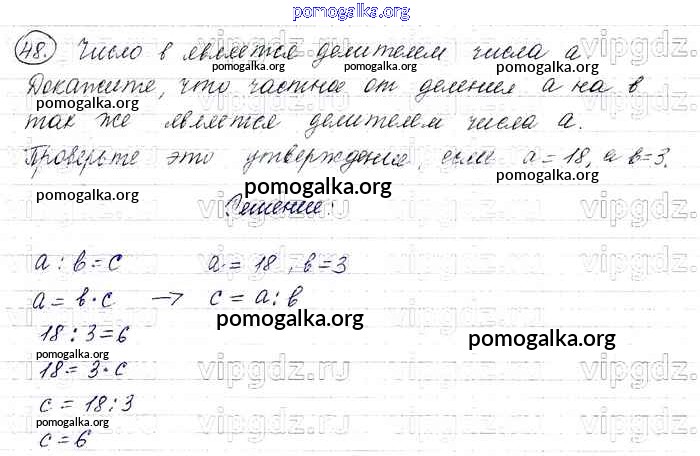 pomogalka.org
48. Число в является делителем числа а.
pomogalka.org pomogalka.org
Докажите, что частное от деления а на в
pomogalka.org pomogalka.org
так же является делителем числа а.
Проверьте это утверждение, если а = 18, а в = 3.
pomogalka.org pomogalka.org
vipgdz.ru vipgdz.ru
Решение:
а : в = с а = 18, в = 3
pomogalka.org
а = в · с → с = а : в
pomogalka.org
18 : 3 = 6
pomogalka.org
pomogalka.org
18 = 3 · с
vipgdz.ru vipgdz.ru vipgdz.ru
с = 18 : 3
pomogalka.org
с = 6